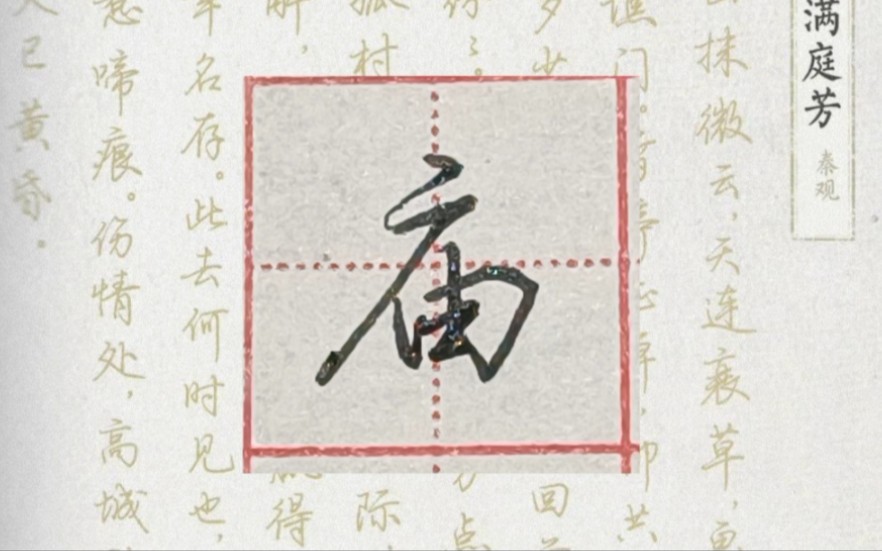 满庭芳
秦观
抹微云,天连衰草,
谯门。
共
多少
回
纷。
点
孤村
际
解,
得
幸名存。此去何时见也,
惹啼痕。伤情处,高城
火已黄昏。
庙